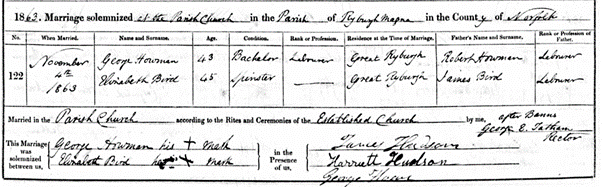 1863. Marriage solemnized at the Parish Church in the Parish of Ryburgh Magna in the County of Norfolk
No. When Married. Name and Surname. Age. Condition. Rank or Profession. Residence at the Time of Marriage. Father's Name and Surname. Rank or Profession of Father.
122 November 4th 1863
George Howman 43 Bachelor Labourer Great Ryburgh Robert Howman Labourer
Elizabeth Bird 45 Spinster Great Ryburgh James Bird Labourer
Married in the Parish Church according to the Rites and Ceremonies of the Established Church by me, after Banns
George E. Tatham
Rector
This Marriage was solemnized between us, George Howman his + mark
Elizabeth Bird her + mark
in the Presence of us, James Hudson
Harriett Hudson
George